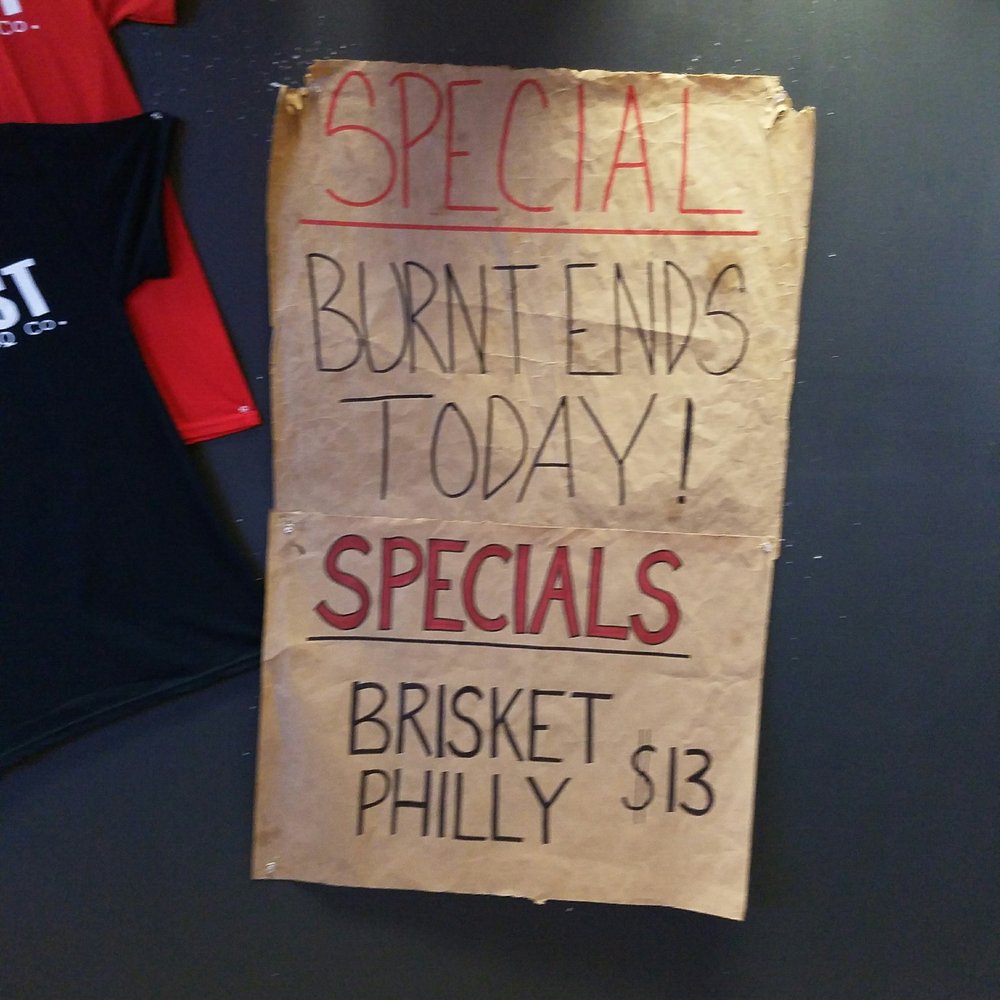 CO-
ST
Q CO-
SPECIAL
BURNT ENDS
TODAY!
SPECIALS
BRISKET
PHILLY $13